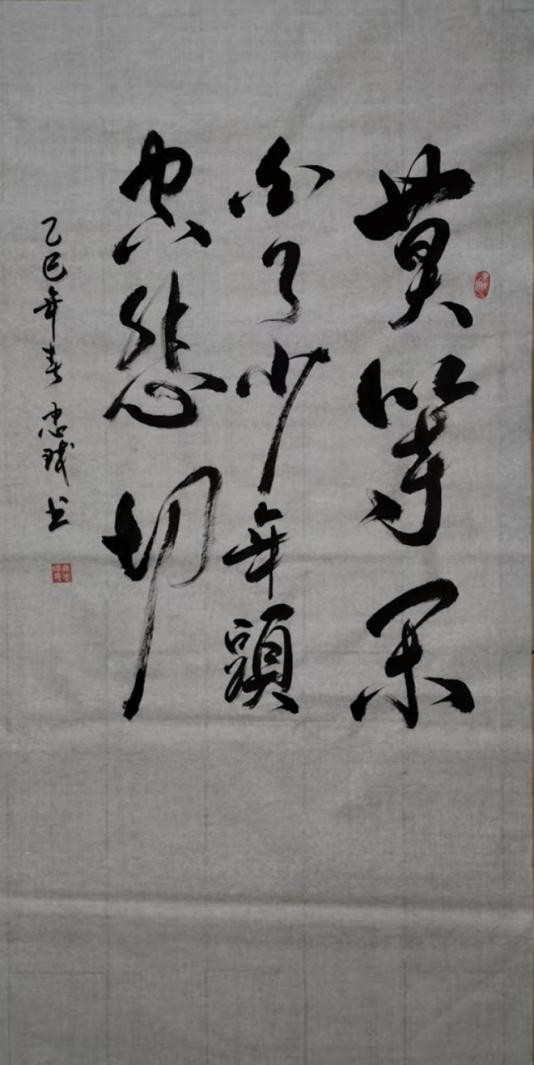 莫等闲
白了少年头
空悲切
乙巳年春 忠诚书